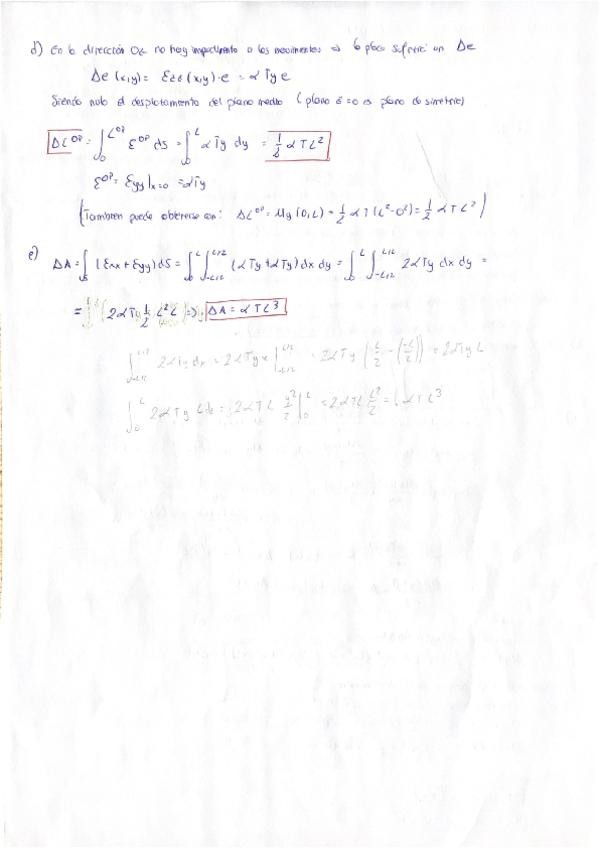 d) En la dirección Oz no hay impedimento a los movimientos ⇒ la placa sufrirá un Δe
Δe (x,y) = Ezz (x,y)·e = αTy e
Siendo nulo el desplazamiento del plano medio (plano z=0 es plano de simetría)
ΔL^OP = ∫₀^{L^OP} ε^OP dS = ∫₀^L αTy dy = 1/2 αTL²
ε^OP = εyy|x=0 = αTy
(También puede obtenerse con: ΔL^OP = uy(0,L) = 1/2 αT(L²-0²) = 1/2 αTL²)
e) ΔA = ∫_S (εxx + εyy) dS = ∫₀^L ∫_{-L/2}^{L/2} (αTy + αTy) dx dy = ∫₀^L ∫_{-L/2}^{L/2} 2αTy dx dy =
= 2αT 1/2 L²L ⇒ ΔA = αTL³
∫_{-L/2}^{L/2} 2αTy dx = 2αTyx |_{-L/2}^{L/2} = 2αTy (L/2 - (-L/2)) = 2αTy L
∫₀^L 2αTy L dx = 2αTL y²/2 |₀^L = 2αTL L²/2 = αTL³